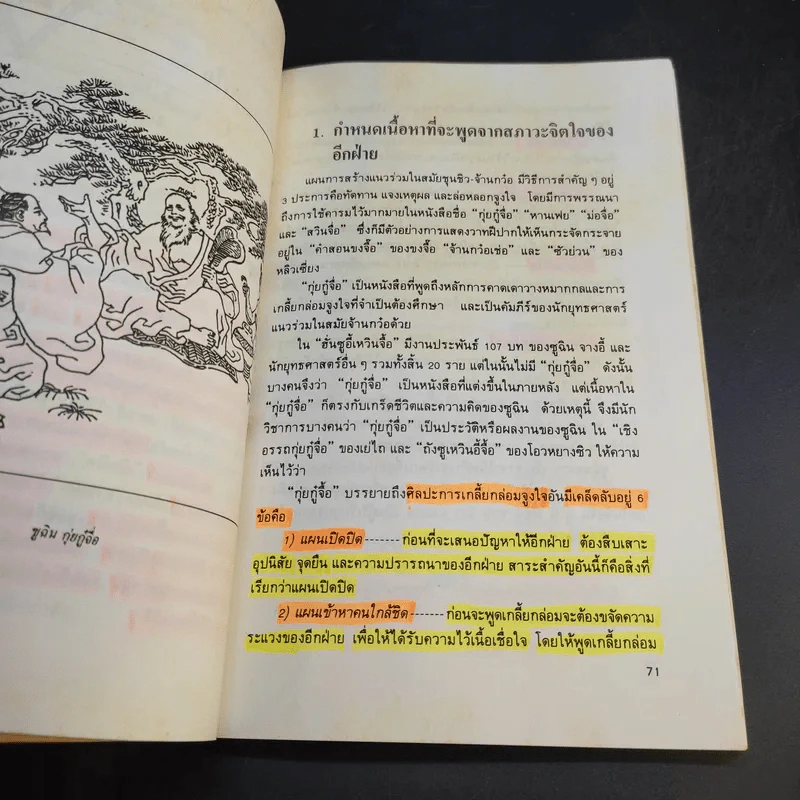 ซูฉิน กุ่ยกู๋จื่อ
1. กำหนดเนื้อหาที่จะพูดจากสภาวะจิตใจของ
อีกฝ่าย
แผนการสร้างแนวร่วมในสมัยชุนชิว-จ้านกว๋อ มีวิธีการสำคัญ ๆ อยู่
3 ประการคือทัดทาน แจงเหตุผล และล่อหลอกจูงใจ โดยมีการพรรณนา
ถึงการใช้คารมไว้มากมายในหนังสือชื่อ “กุ่ยกู๋จื่อ” “หานเฟย” “ม่อจื่อ”
และ “สวินจื่อ” ซึ่งก็มีตัวอย่างการแสดงวาทฝีปากให้เห็นกระจัดกระจาย
อยู่ใน “คำสอนขงจื้อ” ของขงจื้อ “จ้านกว๋อเช่อ” และ “ซัวย่วน” ของ
หลิวเซี่ยง
“กุ่ยกู๋จื่อ” เป็นหนังสือที่พูดถึงหลักการคาดเดาวางหมากกลและการ
เกลี้ยกล่อมจูงใจที่จำเป็นต้องศึกษา และเป็นคัมภีร์ของนักยุทธศาสตร์
แนวร่วมในสมัยจ้านกว๋อด้วย
ใน “ฮั่นซูอี้เหวินจื้อ” มีงานประพันธ์ 107 บท ของซูฉิน จางอี้ และ
นักยุทธศาสตร์อื่น ๆ รวมทั้งสิ้น 20 ราย แต่ในนั้นไม่มี “กุ่ยกู๋จื่อ” ดังนั้น
บางคนจึงว่า “กุ่ยกู๋จื่อ” เป็นหนังสือที่แต่งขึ้นในภายหลัง แต่เนื้อหาใน
“กุ่ยกู๋จื่อ” ก็ตรงกับเกร็ดชีวิตและความคิดของซูฉิน ด้วยเหตุนี้ จึงมีนัก
วิชาการบางคนว่า “กุ่ยกู๋จื่อ” เป็นประวัติหรือผลงานของซูฉิน ใน “เชิง
อรรถกุ่ยกู๋จื่อ” ของเย่ไถ และ “ถังซูเหวินอี้จื้อ” ของโอวหยางซิว ให้ความ
เห็นไว้ว่า
“กุ่ยกู๋จื้อ” บรรยายถึงศิลปะการเกลี้ยกล่อมจูงใจอันมีเคล็ดลับอยู่ 6
ข้อคือ
1) แผนเปิดปิด------- ก่อนที่จะเสนอปัญหาให้อีกฝ่าย ต้องสืบเสาะ
อุปนิสัย จุดยืน และความปรารถนาของอีกฝ่าย สาระสำคัญอันนี้ก็คือสิ่งที่
เรียกว่าแผนเปิดปิด
2) แผนเข้าหาคนใกล้ชิด------- ก่อนจะพูดเกลี้ยกล่อมจะต้องขจัดความ
ระแวงของอีกฝ่าย เพื่อให้ได้รับความไว้เนื้อเชื่อใจ โดยให้พูดเกลี้ยกล่อม
71